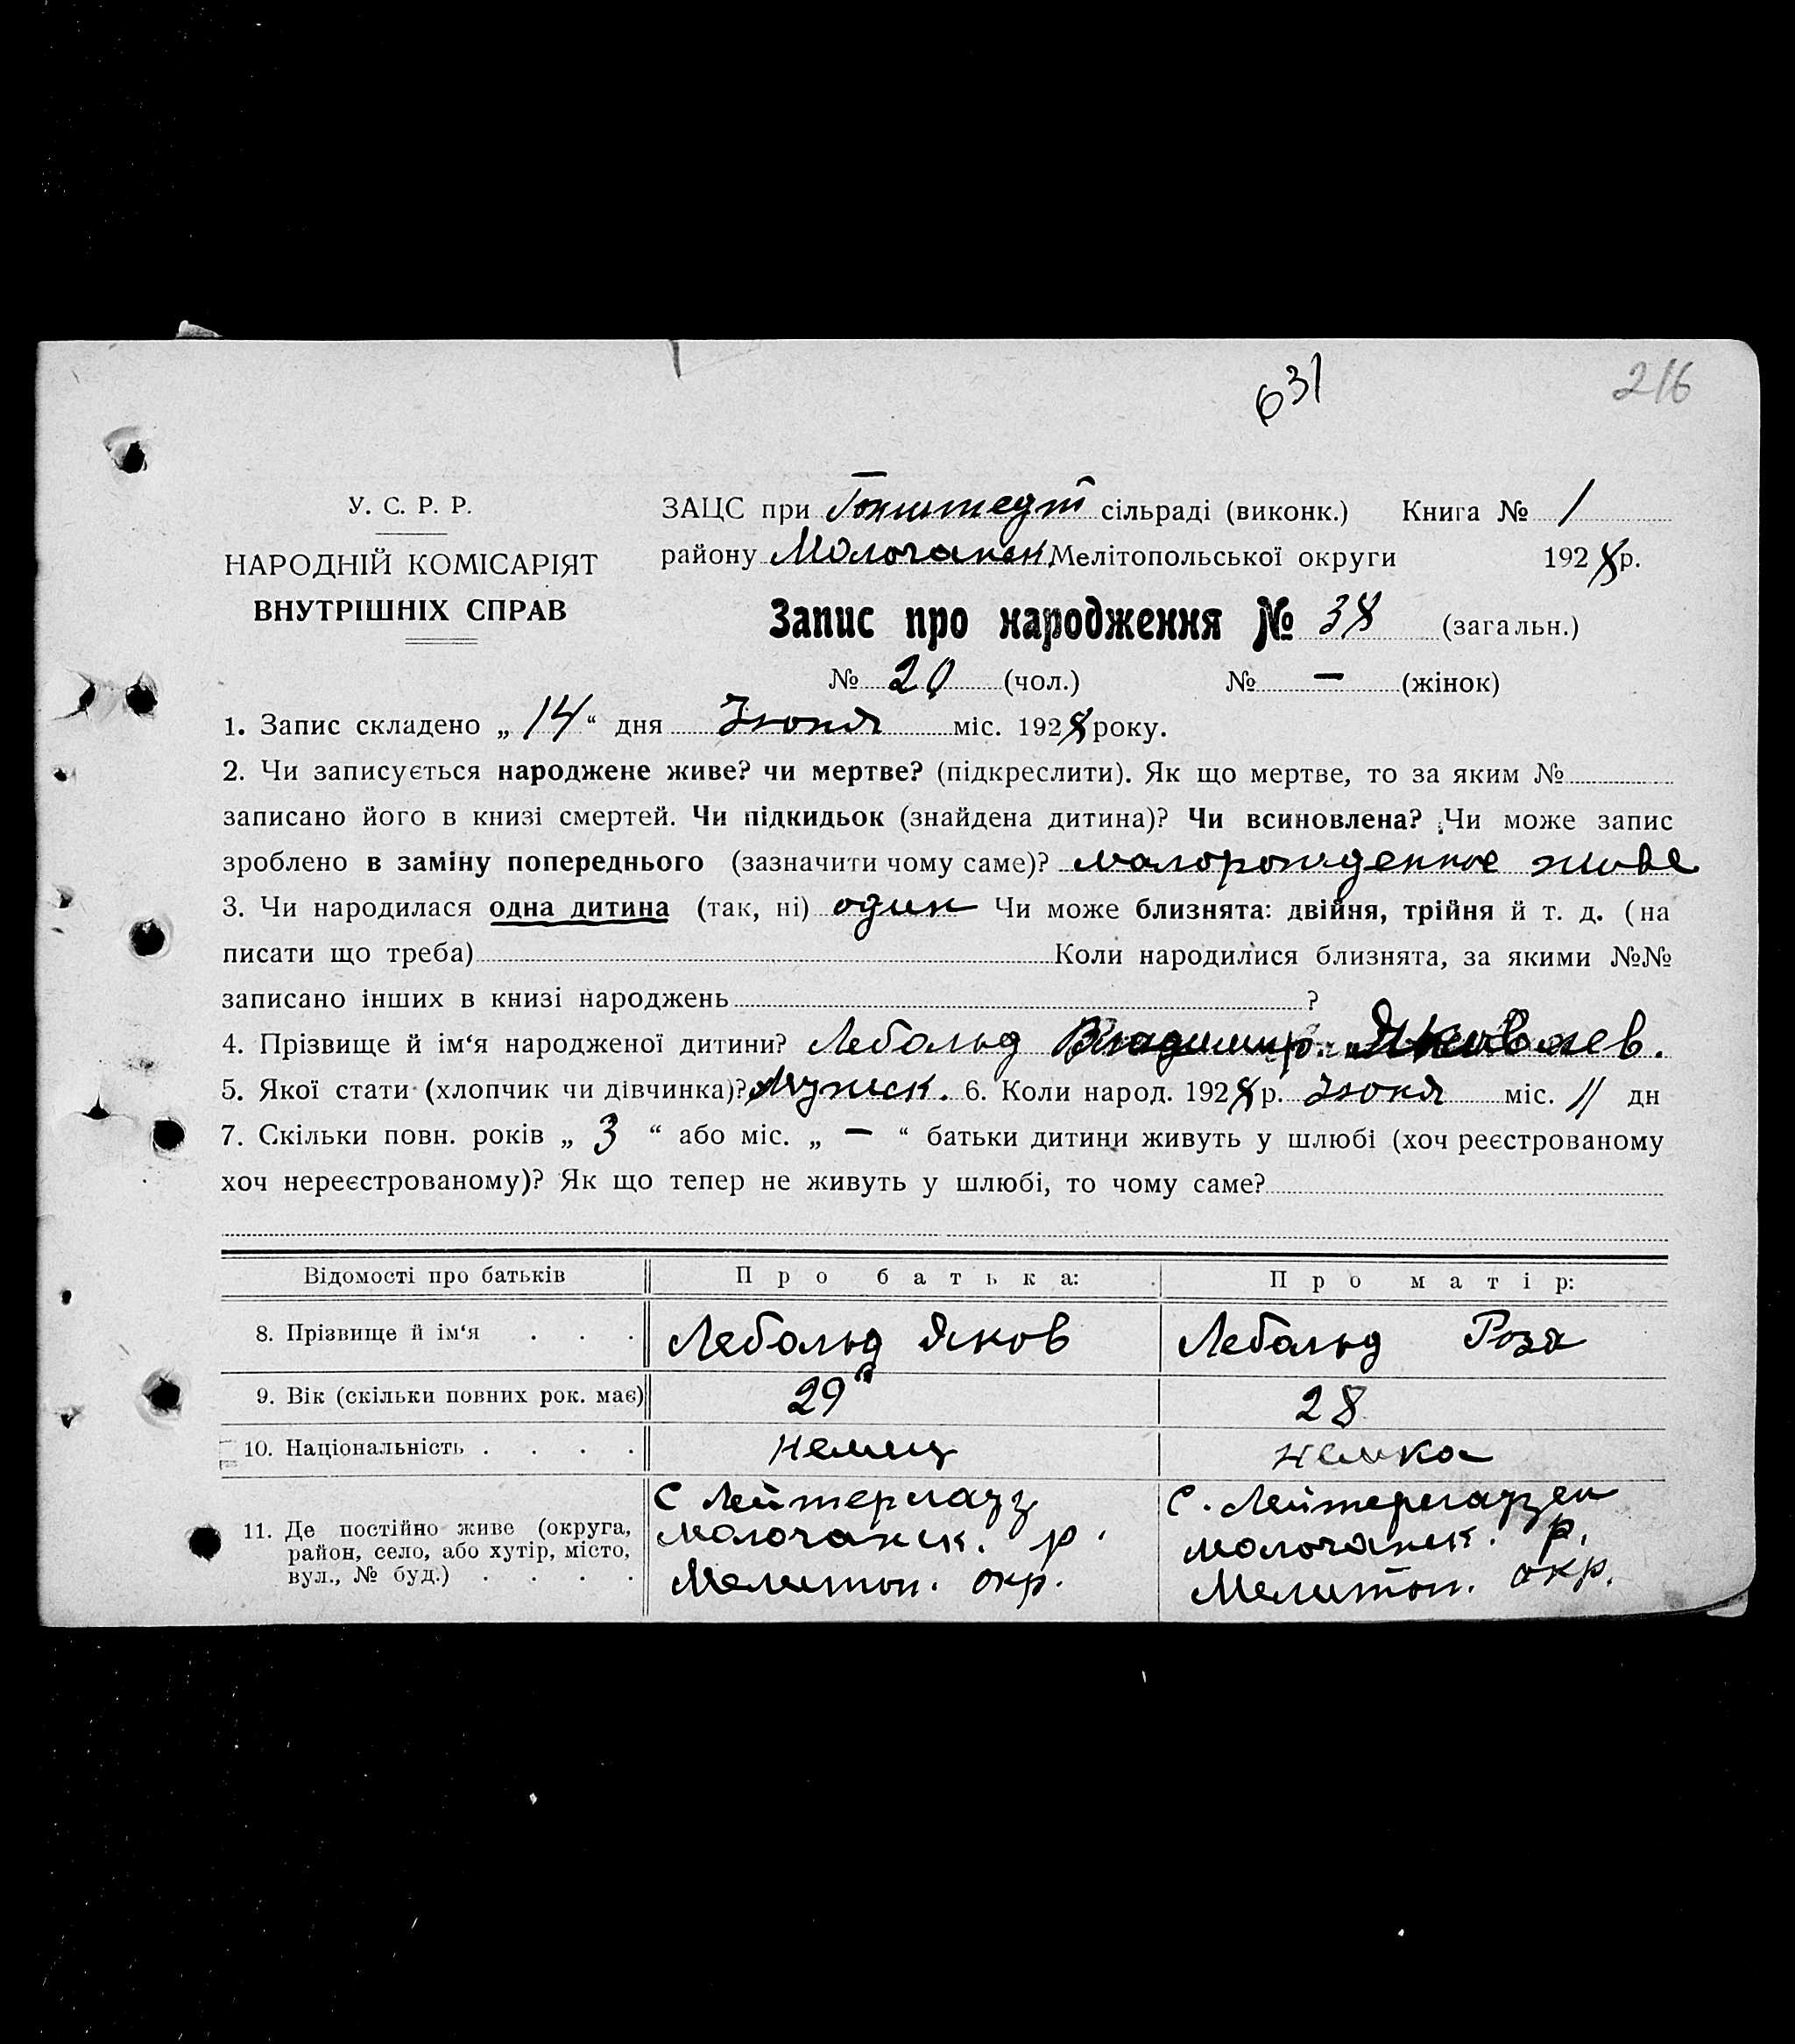 631
216
У. С. Р. Р.
НАРОДНІЙ КОМІСАРІЯТ
ВНУТРІШНІХ СПРАВ
ЗАЦС при Гохштедт сільраді (виконк.) Книга № 1
району Молочанск Мелітопольської округи 1928 р.
Запис про народження № 38 (загальн.)
№ 20 (чол.) № — (жінок)
1. Запис складено „ 14 “ дня Июня міс. 1928 року.
2. Чи записується народжене живе? чи мертве? (підкреслити). Як що мертве, то за яким №
записано його в книзі смертей. Чи підкидьок (знайдена дитина)? Чи всиновлена? Чи може запис
зроблено в заміну попереднього (зазначити чому саме)? живе
3. Чи народилася одна дитина (так, ні) один Чи може близнята: двійня, трійня й т. д. (на
писати що треба) Коли народилися близнята, за якими №№
записано інших в книзі народжень ?
4. Прізвище й ім‘я народженої дитини? Лебольд Владимир
5. Якої стати (хлопчик чи дівчинка)? Мужск. 6. Коли народ. 1928 р. Июня міс. 11 дн
7. Скільки повн. років „ 3 “ або міс. „ — “ батьки дитини живуть у шлюбі (хоч реєстрованому
хоч нереєстрованому)? Як що тепер не живуть у шлюбі, то чому саме?
Відомості про батьків Про батька: Про матір:
8. Прізвище й ім‘я . . . Лебольд Яков Лебольд Роза
9. Вік (скільки повних рок. має) 29 28
10. Національність . . . . немец немка
11. Де постійно живе (округа,
район, село, або хутір, місто,
вул., № буд.) . . . .
С Лейтергауз
Молочанск. р.
Мелитоп. окр.
С. Лейтерегаузен
Молочанск. р.
Мелитоп. окр.